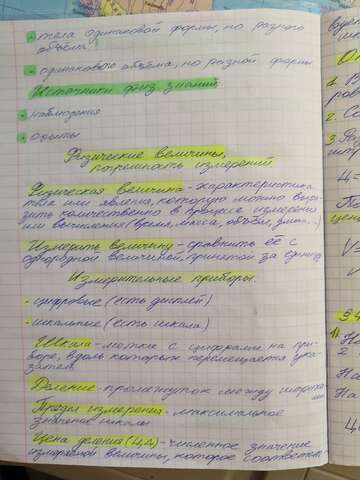 - тела одинаковой формы, но разного
объёма
- одинакового объёма, но разной формы
Источники физ. знаний
- наблюдения
- опыты
Физические величины,
погрешность измерений
Физическая величина - характеристика
тела или явления, которую можно выра-
зить количественно в процессе измерения
или вычисления (время, масса, объём, длина...)
Измерить величину - сравнить её с
однородной величиной, принятой за единицу
Измерительные приборы.
- цифровые (есть дисплей)
- шкальные (есть шкала)
Шкала - метки с цифрами на при-
боре, вдоль которых перемещается ука-
затель
Деление - промежуток между штрихами
Предел измерения - максимальное
значение шкалы
Цена деления (Ц.Д.) - численное значение
измеряемой величины, которое соответст-